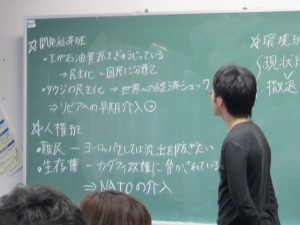 ☆開発経済班
・王が石油資源をぎゅうじっている
→民主化→国民に分育て
・サウジの民主化→世界への経済ショック
⇒リビアへの早期介入
☆人権班
・難民ーヨーロッパとしては流出を防ぎたい
・生存権ーカダフィ政権に脅かされている
⇒NATOの介入
☆環境班
現状
撤退